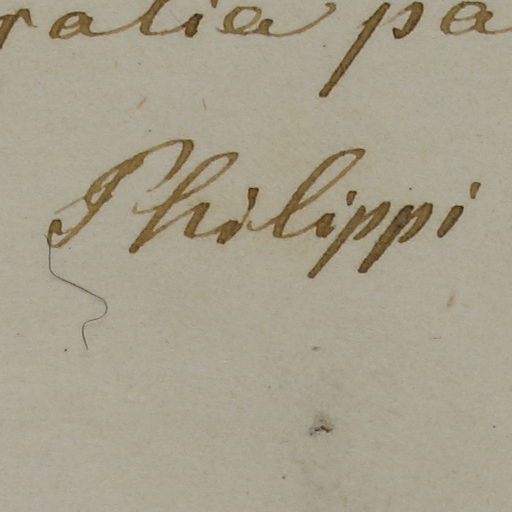 ralia pa
Philippi